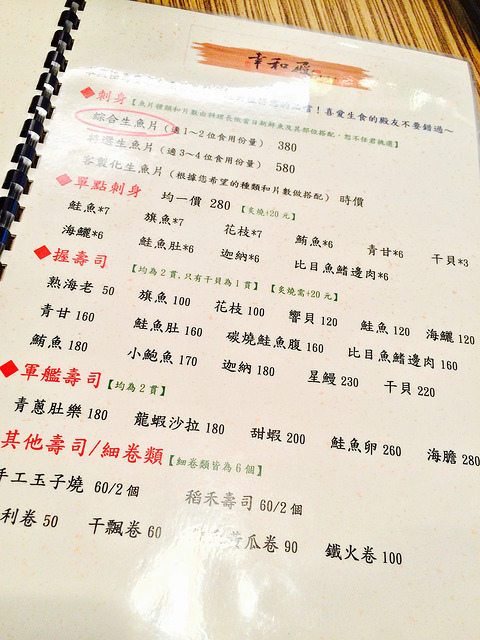 幸和殿
喜愛生食的殿友不要錯過~
◆刺身【魚片種類和片數由料理長依當日新鮮魚及其部位搭配，恕不任君挑選】
綜合生魚片（適1~2位食用份量） 380
特選生魚片（適3~4位食用份量） 580
客製化生魚片（根據您希望的種類和片數做搭配） 時價
◆單點刺身 均一價 280 【炙燒+20元】
鮭魚*7 旗魚*7 花枝*7 鮪魚*6 青甘*6 干貝*3
海鱺*6 鮭魚肚*6 迦納*6 比目魚鰭邊肉*6
◆握壽司 【均為2貫,只有干貝為1貫】【炙燒需+20元】
熟海老 50 旗魚 100 花枝 100 響貝 120 鮭魚 120 海鱺 120
青甘 160 鮭魚肚 160 碳燒鮭魚腹 160 比目魚鰭邊肉 160
鮪魚 180 小鮑魚 170 迦納 180 星鰻 230 干貝 220
◆軍艦壽司【均為2貫】
青蔥肚樂 180 龍蝦沙拉 180 甜蝦 200 鮭魚卵 260 海膽 280
其他壽司/細卷類【細卷類皆為6個】
手工玉子燒 60/2個 稻禾壽司 60/2個
利卷 50 干瓢卷 60 瓜卷 90 鐵火卷 100